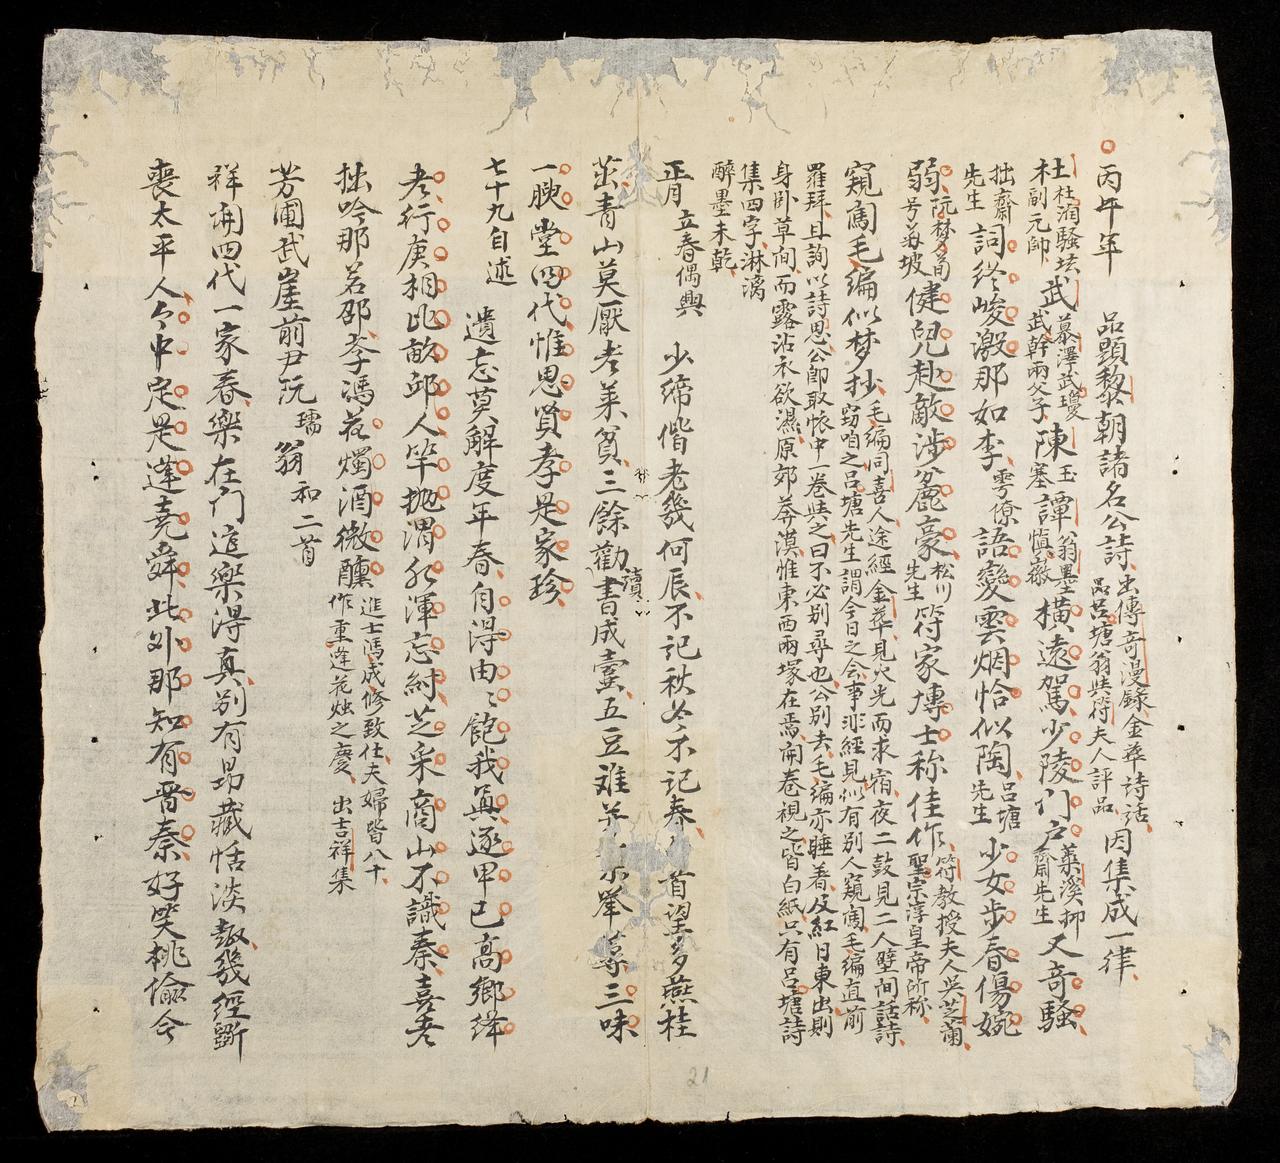 丙午年 品題黎朝諸名公詩 出傳奇漫錄金華詩話
品呂塘翁與符夫人評品 因集成一律
杜 杜润騷坛
木副元帥 武 慕澤武瓊
武幹兩父子 陳 玉塞 譚 翁墨
慎徽 橫遠駕少陵门户 藥溪
齋先生 又奇騷
拙齋
先生 詞终峻激那如李 雩僚 語变雲烟恰似陶 呂塘
先生 少女步春傷婉
弱 阮梦荀
号菊坡 健兒赴敵涉麄豪 松川
先生 符家塼士称佳作 符教授夫人吳芝蘭
聖宗淳皇帝所称
窺窗毛編似梦抄 毛編同喜人途經金華見火光而求宿夜二鼓見二人壁間話詩
窃咱之呂塘先生謂今日之会事非經見似有別人窺窗毛編直前
羅拜且詢以詩思公即取帙中一卷與之曰不必别尋也公别去毛編亦睡着及紅日東出則
身卧草向而露沾衣欲濕原郊莽漠惟東西兩塚在焉開卷視之皆白紙只有呂塘詩
集四字淋漓
醉墨未乾
正月 立春偶興 少締偕老幾何辰不記秋冬不记春 首望多燕桂
茁青山莫厭老莱貧三餘勸讀書成 五豆难 舉 三味
一腴堂四代惟思賢孝是家珍
七十九自述 遺忘莫解度年春自得由〻飽我真逐甲已高鄉绛
老行庚相比畝邱人竿抛渭水渾忘紂芝采商山不識秦喜老
拙吟那若邵孝馮花燭酒微醺 進士馮成修致仕夫婦皆八十
作重逢花烛之慶 出吉祥集
芳圃武崖前尹阮 瓀 翁 和二首
祥開四代一家春樂在门這樂得真别有昴藏恬淡 幾經斷
喪太平人今中定是逢堯舜此外那知有晋秦好笑桃 今
21